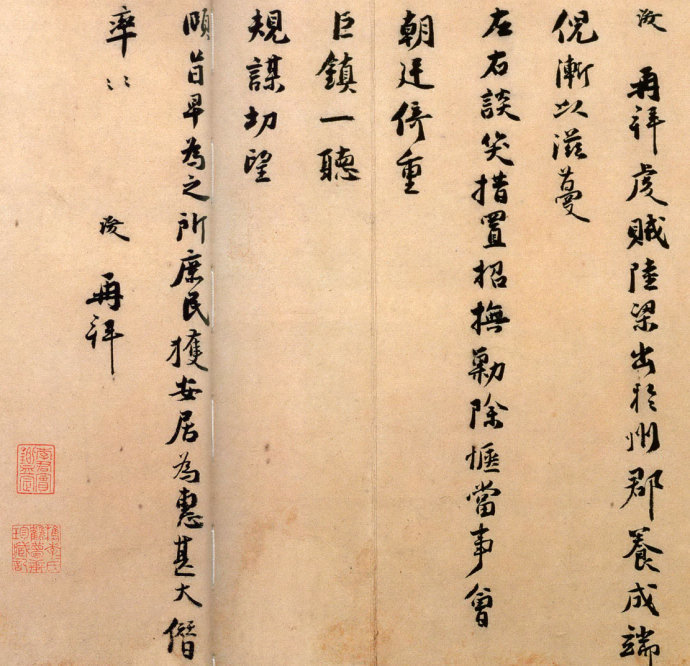 浚 再拜虔賊陸梁出於州郡養成端
倪漸以滋蔓
左右談笑措置招撫勦除惬當事會
朝廷倚重
巨鎮一聽
規謀切望
頤旨早為之所庶民獲安居為惠甚大僭
率〻
浚 再拜